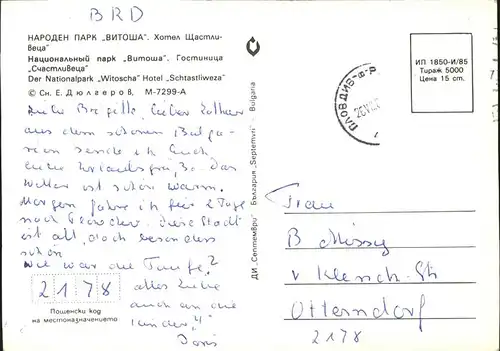 BRD
НАРОДЕН ПАРК „ВИТОША“. Хотел Щастли-
веца“
Национальный парк „Витоша“. Гостиница
„Счастливеца“
Der Nationalpark „Witoscha“ Hotel „Schtastliweza“
© Сн. Е. Дюлгеров, М-7299-А
Liebe Brigitte, lieber Lothar
aus dem schönen Bulga-
rien sende ich Euch
liebe Urlaubsgrüße. Das
Wetter ist schön warm.
Morgen fahre ich für 2 Tage
nach Plovdiv. Diese Stadt
ist alt, doch besonders
schön.
Wie war die Taufe?
alles Liebe
auch an die
Kinder!
Doris
2178
Пощенски код
на местоназначението
ДИ „Септември“ България „Septemvri“ Bulgaria
ПЛОВДИВ
ИП 1850-И/85
Тираж 5000
Цена 15 ст.
Frau
B
v Kleist Str
Otterndorf
2178